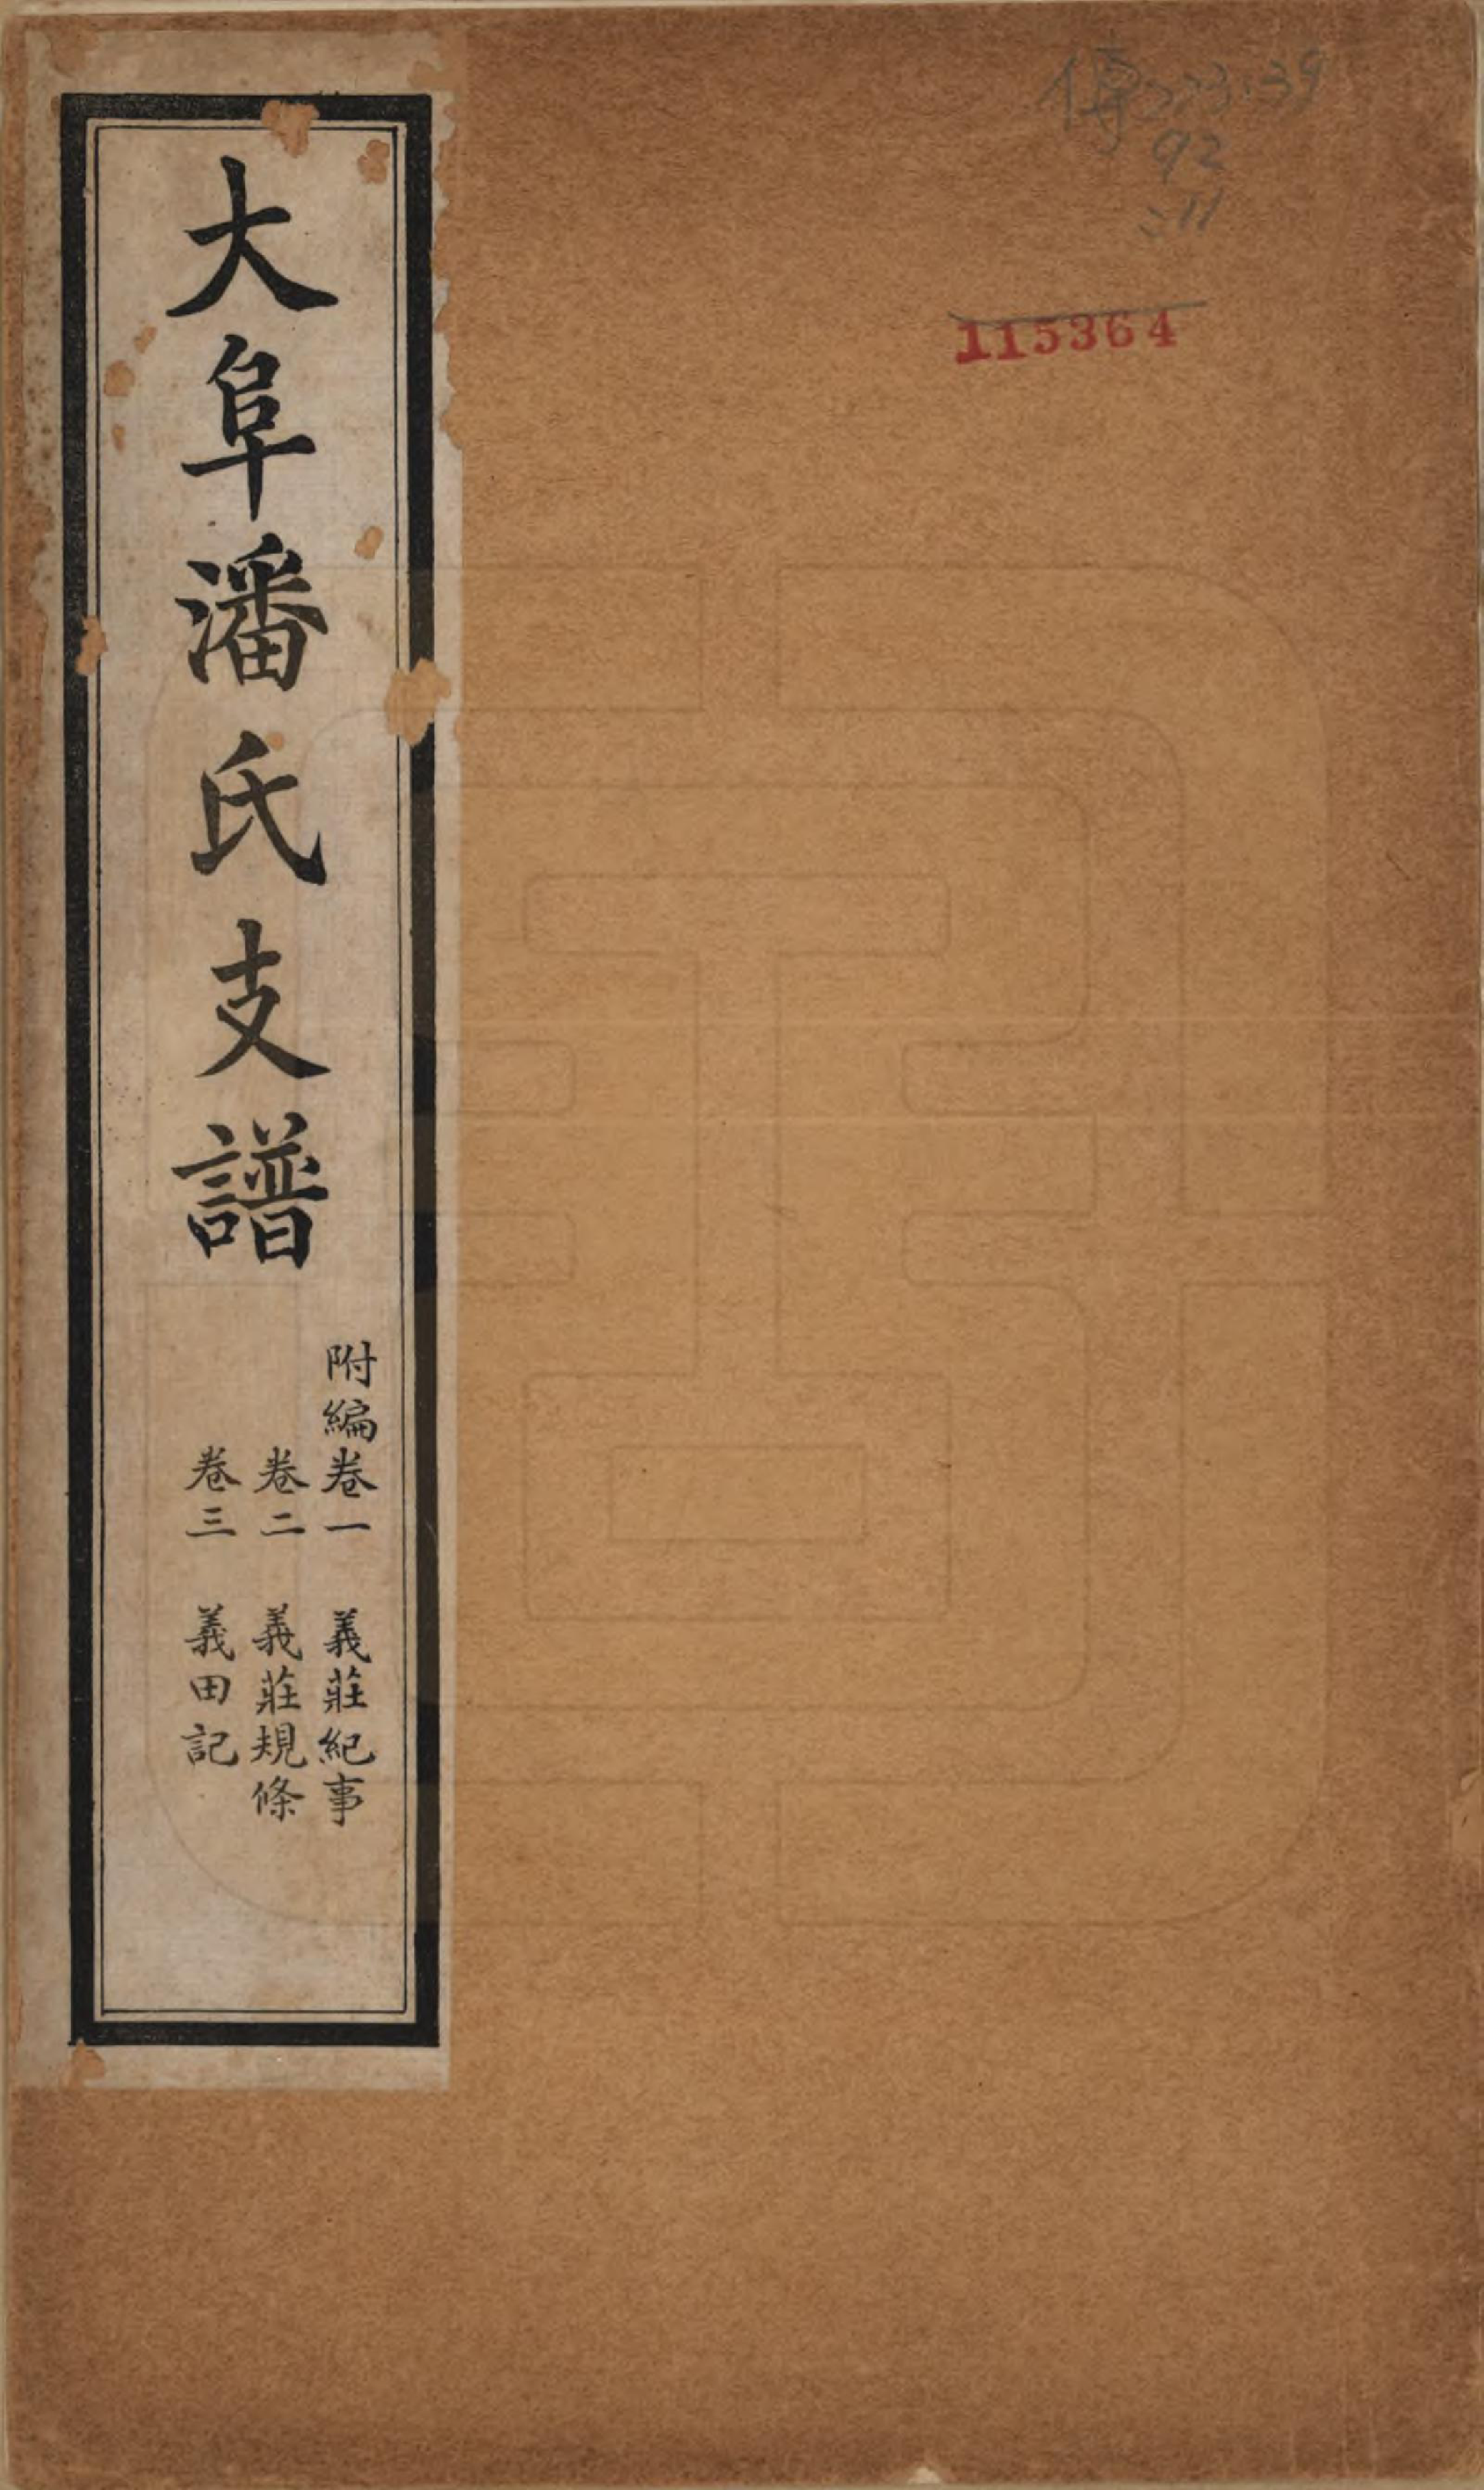 大阜潘氏支譜
附編卷一 義莊紀事
卷二 義莊規條
卷三 義田記
傳223.39
92
:11
115364